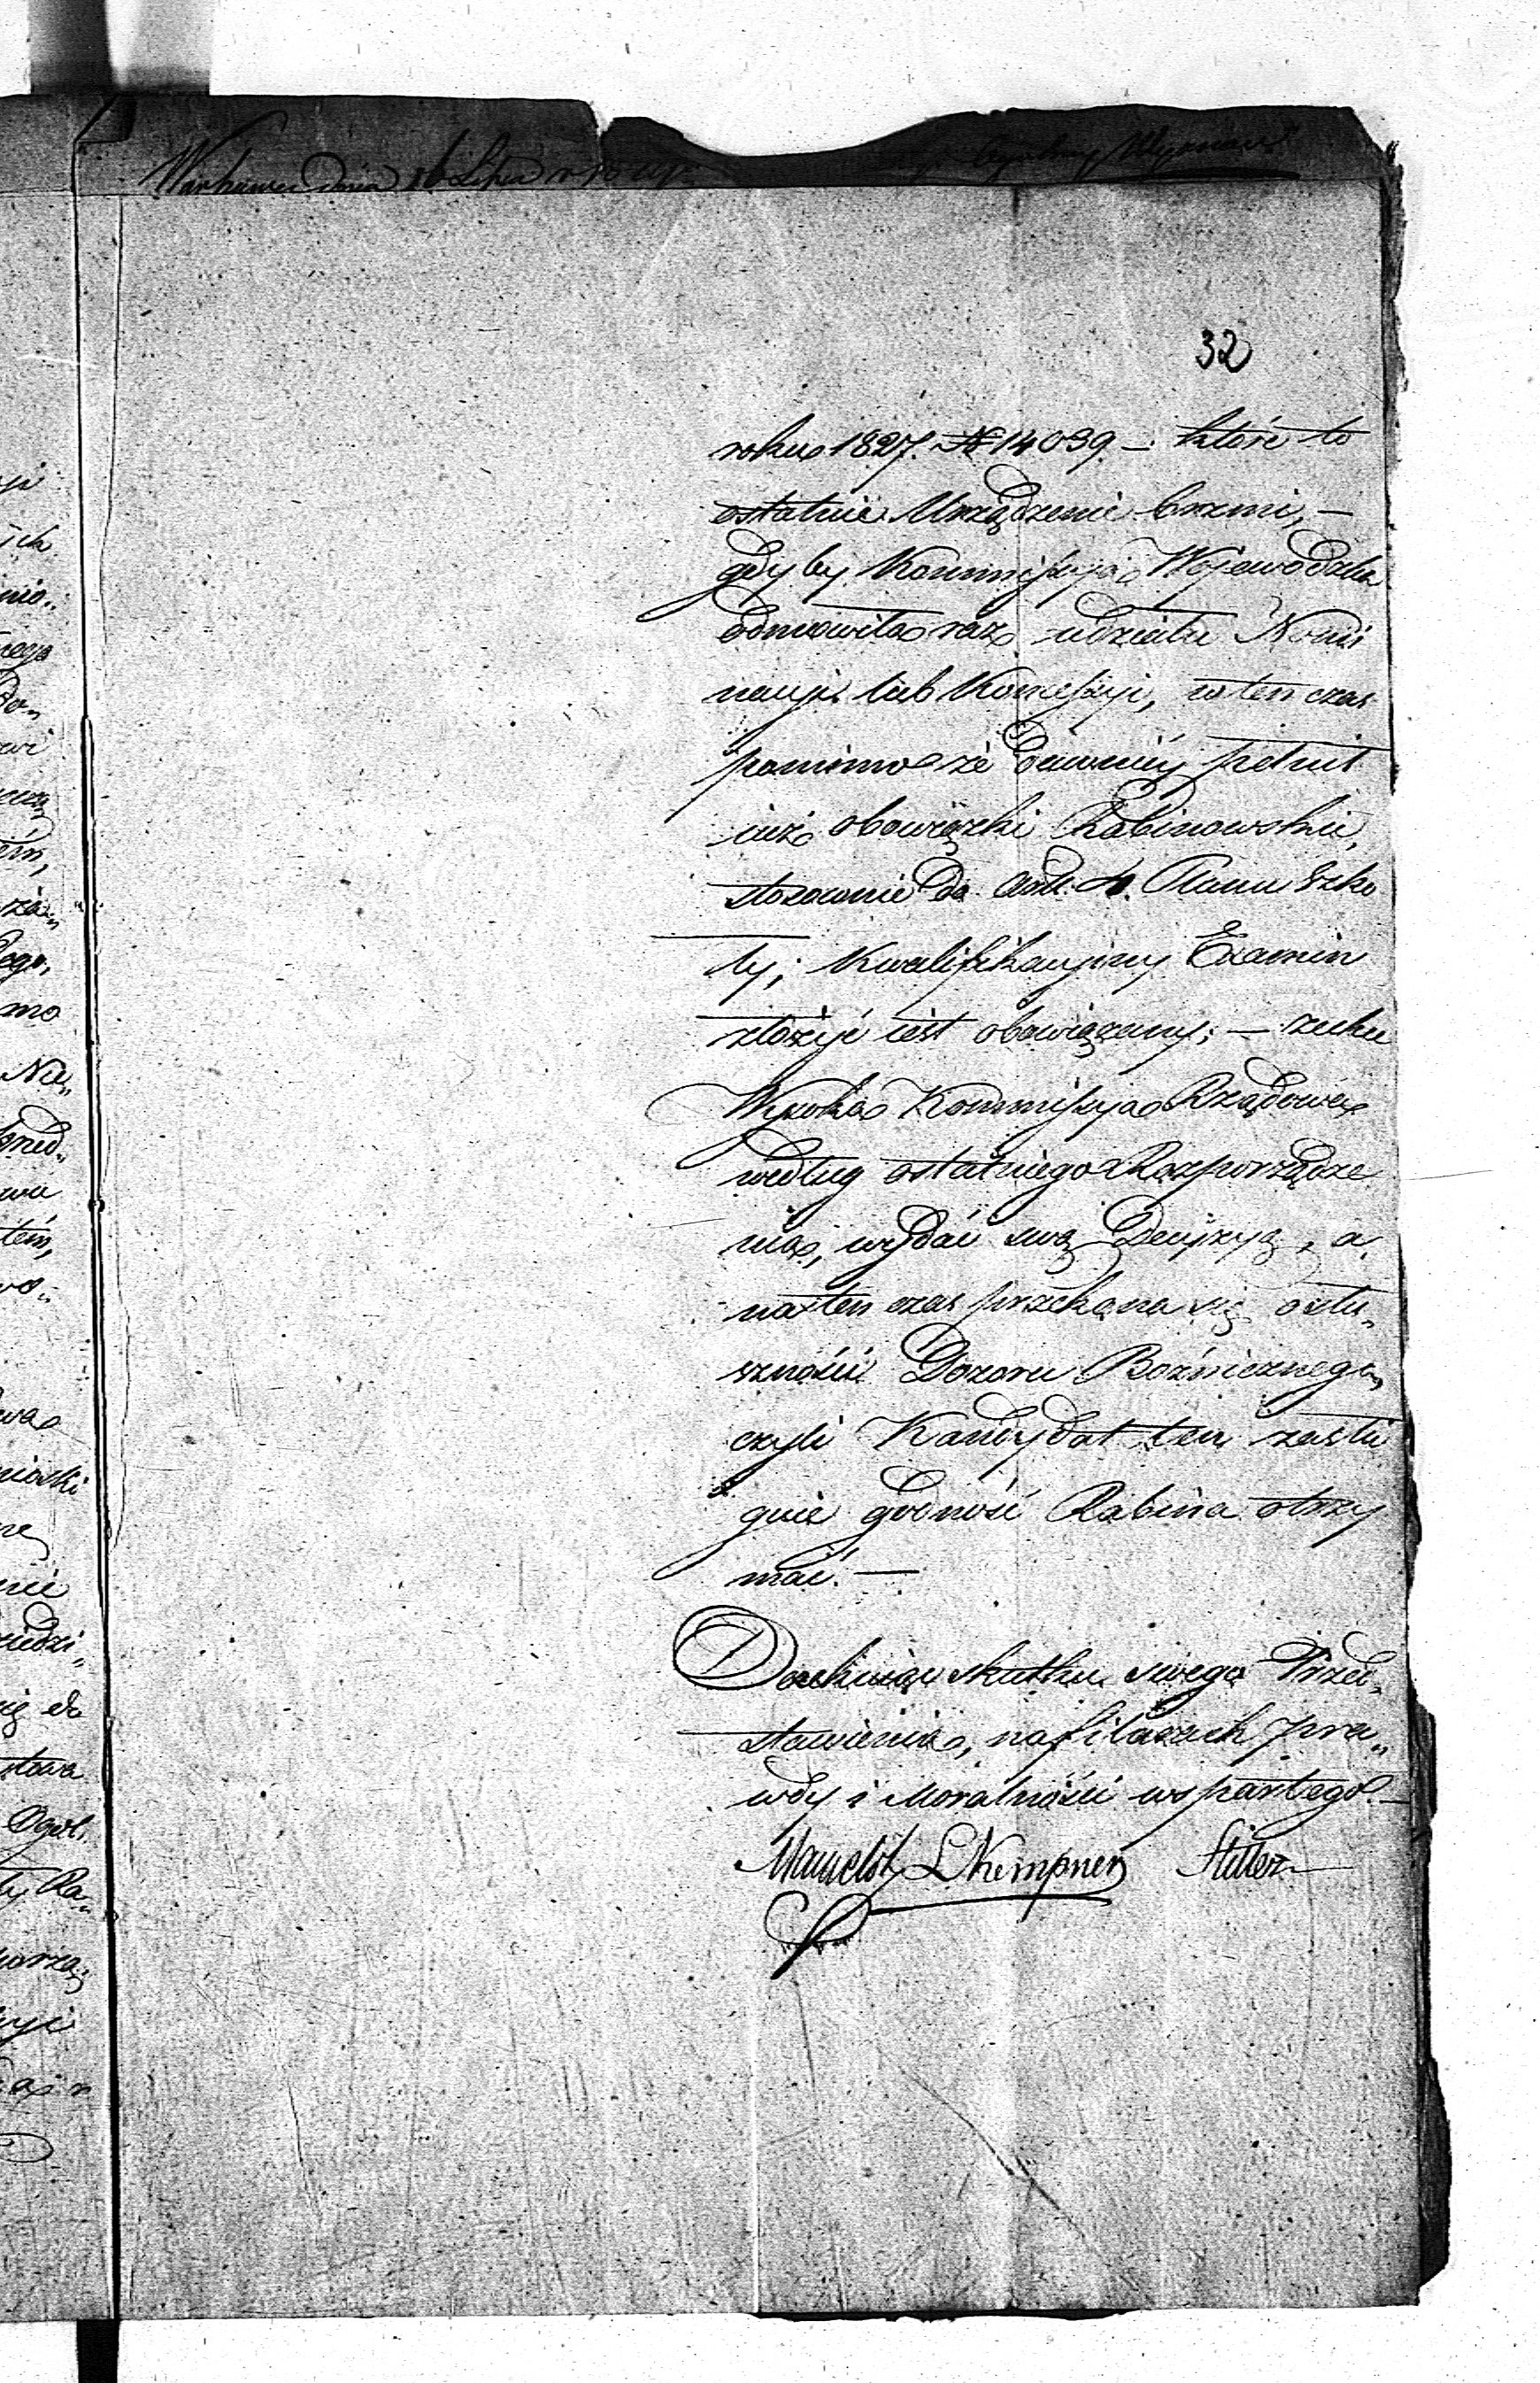 32
roku 1827. № 14039 – które to
ostatnie Urządzenie brzmi, –
gdyby Kommissyja Wojewodzka
odmowiła raz udziału Nomi
nacyi lub Konsessyi, w ten czas
pomimo że dawniéy pełnił
iuż obowiązki Rabinowskie,
stosownie do Art. 4. Planu Szko
ły; Kwalifikacyjny Examin
złożyć iest obowiązany; –
Wysoka Kommissyja Rządowa
według ostatniego Rozporządze
nia, wydać swą Decyzyą, a
na ten czas przekona się o słu„
szności Dozoru Bożnicznego,
czyli Kandydat ten zasłu
guie godność Rabina otrzy
mać. –
Doczekując skutku swego Przed„
stawienia, na filarach pra„
wdy i Moralności wspartego. –
Mamelok L Kempner Stiller